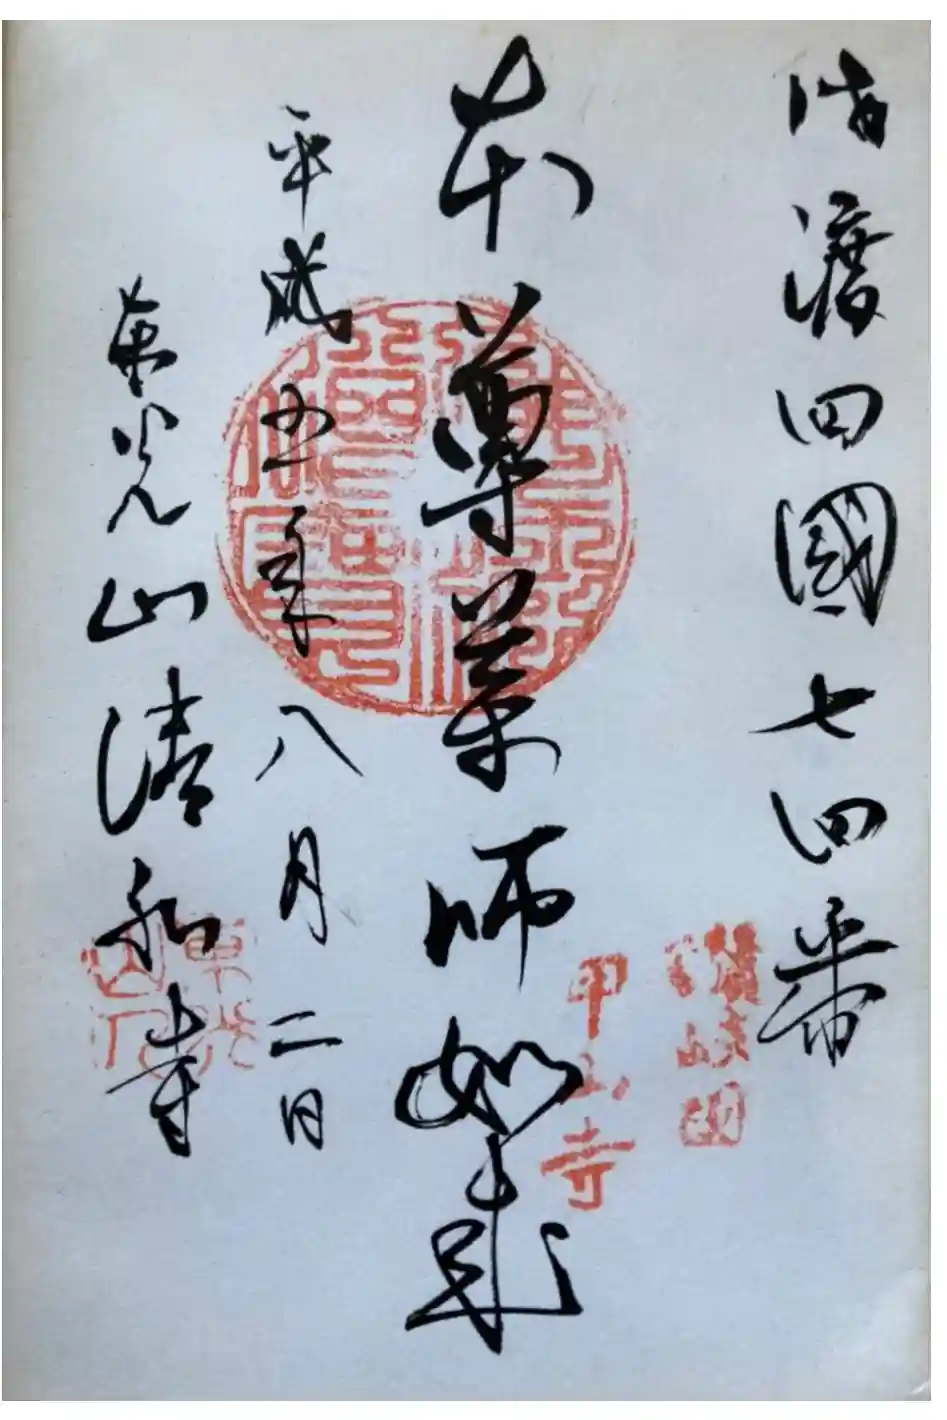 佐渡四國七四番
本尊薬師如来
平成五年八月二日
東光山清和寺
甲山寺